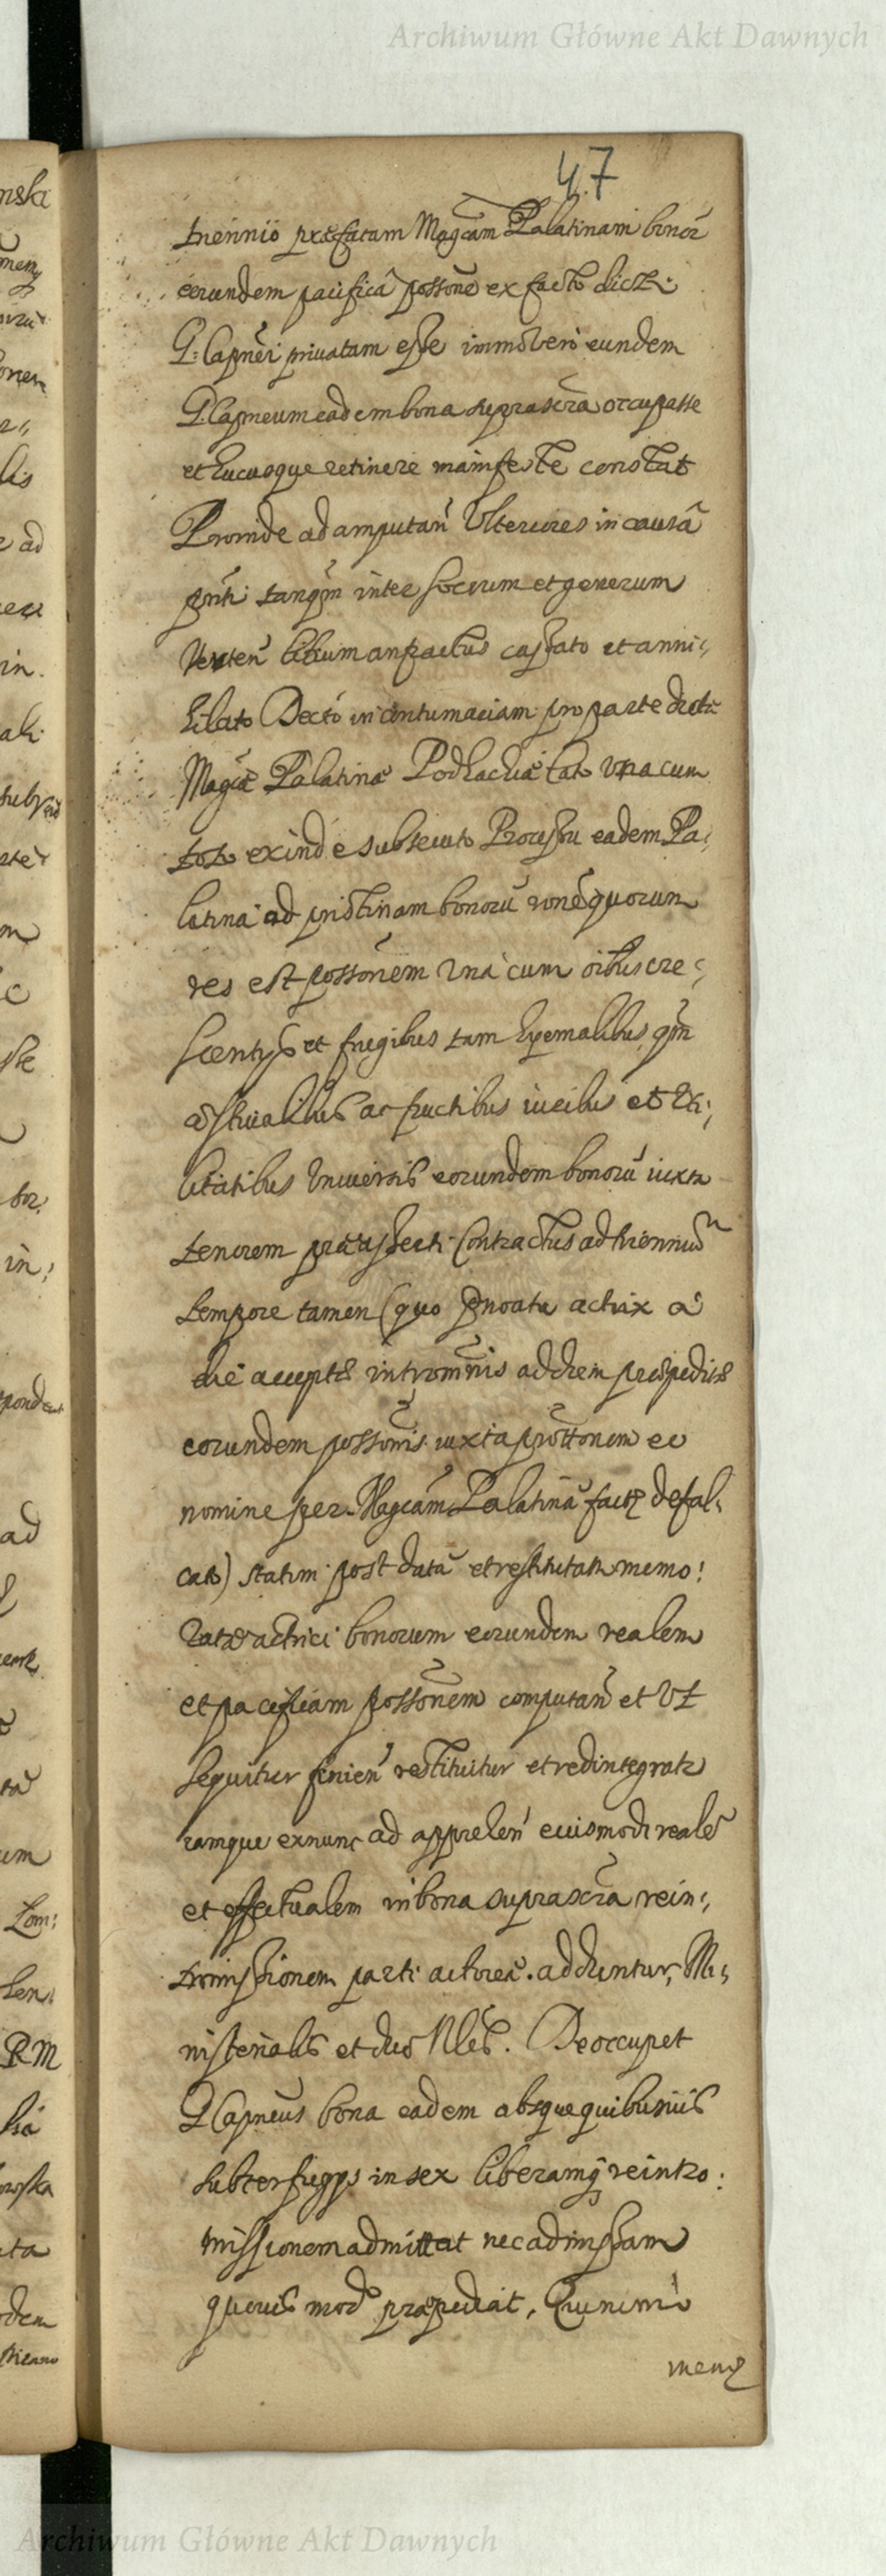 Archiwum Główne Akt Dawnych
47
triennio præfatam Magcam Palatinam bonor
eorundem pacifica possone ex facto dicti
G: Capnei privatam esse immoveri eundem
G. Capneum eadem bona suprascra occupasse
et hucusque retinere manifeste constat
Proinde ad amputan Ulteriores in causa
pnti tanqm inter socrum et generum
verten litium anfractus cassato et anni,,
hilato Decto in contumaciam pro parte dictæ
Magcæ Palatinæ Podlachiæ lato una cum
toto exinde subsecuto Processu eadem Pa,
latina ad pristinam bonoru rone quorum
res est possonem Una cum oibus cre,
scentys et frugibus tam hyemalibus qm
æstivalibus ac fructibus iuribus et Uti,
litatibus Universis eorundem bonoru iuxta
tenorem præasserti Contractus ad trienniu
tempore tamen (quo pnoata actrix a
die acceptæ intromnis ad diem præpeditæ
eorundem possonis iuxta prottonem eo
nomine per Magcam Palatina factæ defal,
cato) statim post data et restitutam memo:
ratæ actrici bonorum eorundem realem
et pacificam possonem computan et Ut
sequitur finien restituitur et redintegratur
eamque exnunc ad apprehen eiusmodi reale
et effectualem in bona suprascra rein,,
tromissionem parti actoreæ adduntur, Mi,,
nisterialis et duo Nles. Deoccupet
G Capneus bona eadem absque quibusvis
subterfugys in sex liberamq reintro:
missionem admittat nec admissam
quovis modo præpediat, Quinimo